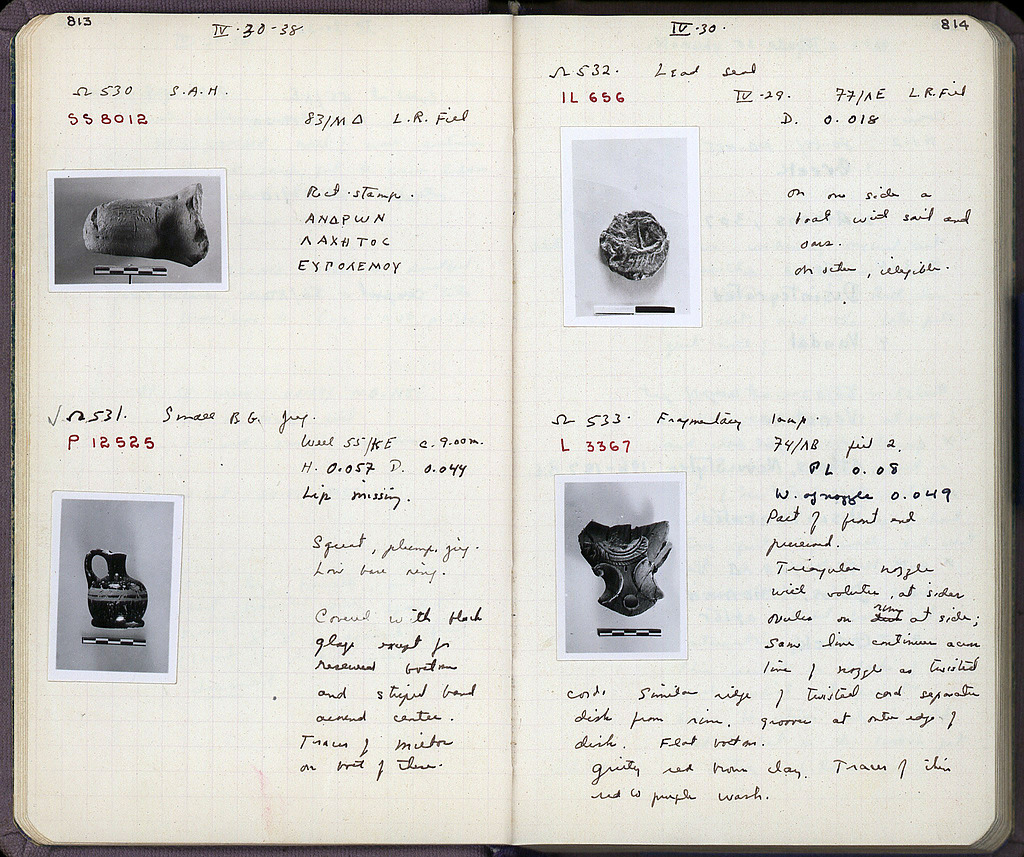 813
IV·30-38
Ω 530 S.A.H.
SS 8012
83/ΜΔ L.R. Fill
Rect. stamp.
ΑΝΔΡωΝ
ΛΑΧΗΤΟC
ΕΥΠΟΛΕΜΟΥ
√ Ω 531. Small B.G. jug.
P 12525
Well 55/ΚΕ c. 9.00 m.
H. 0.057 D. 0.044
Lip missing.
Squat, plump, jug.
Low base ring.
Covered with black
glaze except for
reserved bottom
and striped band
around center.
Traces of miltos
on both of these.
814
IV·30·
Ω 532. Lead seal
IL 656
IV-29. 77/ΛΕ L.R. Fill
D. 0.018
on one side a
boat with sail and
oars.
on other, illegible.
Ω 533. Fragmentary lamp.
L 3367
74/ΛΒ fill 2.
PL 0.08
W. of nozzle 0.049
Part of front end
preserved.
Triangular nozzle
with volutes, at sides
ovules on rim at side;
same line continues across
line of nozzle as twisted
cord. Similar ridge of twisted cord separates
disk from rim. grooves at outer edge of
disk. Flat bottom.
Gritty red brown clay. Traces of thin
red to purple wash.